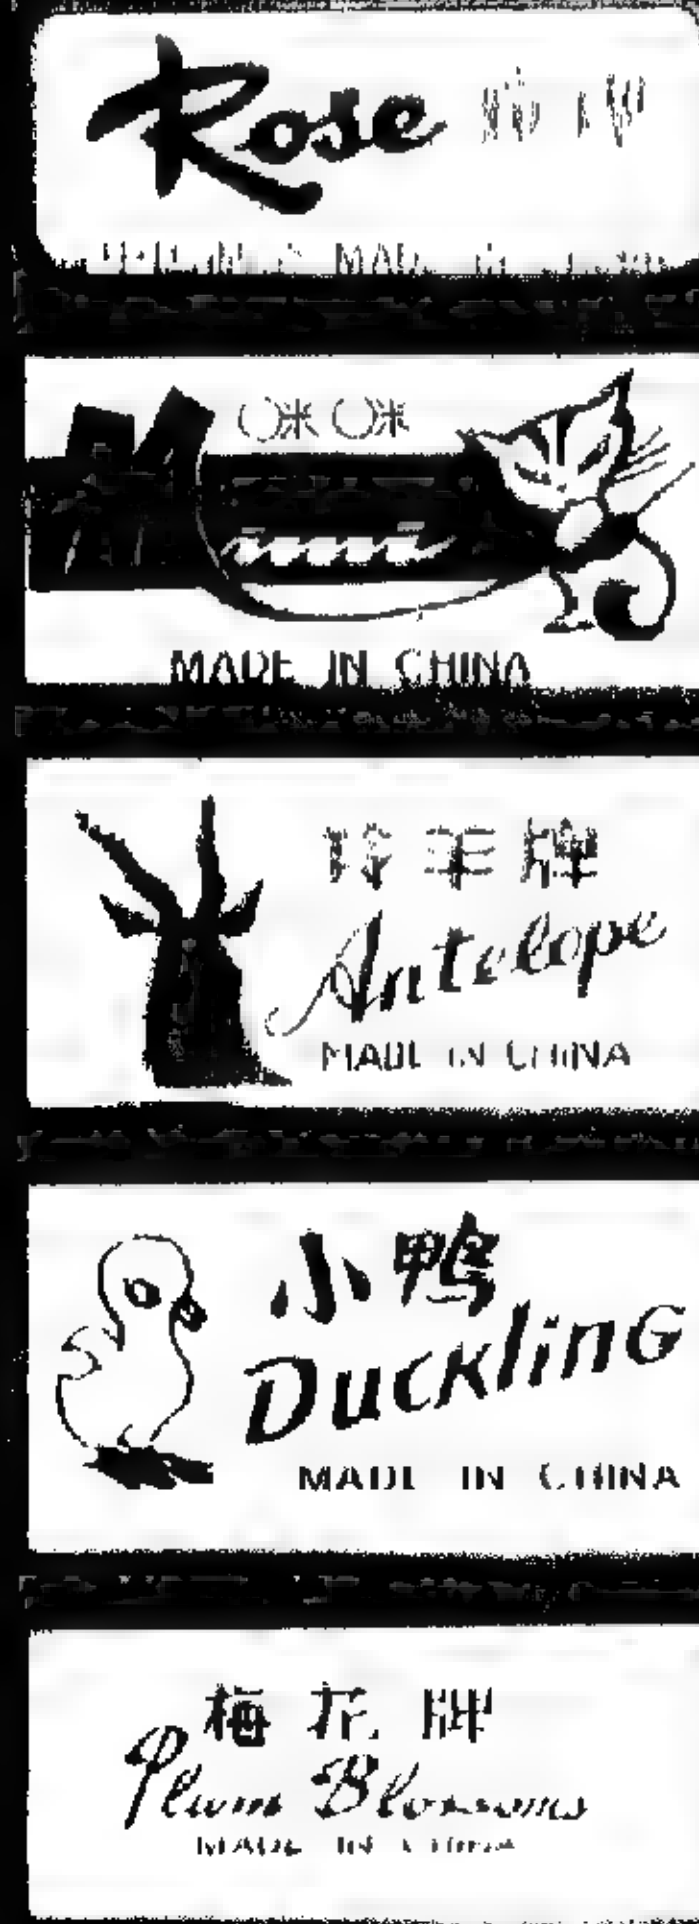 Rose
咪咪
MADE IN CHINA
羚羊牌
Antelope
MADE IN CHINA
小鸭
Duckling
MADE IN CHINA
梅花牌
Plum Blossoms
MADE IN CHINA